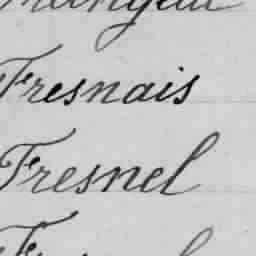 Fresnais
Fresnel